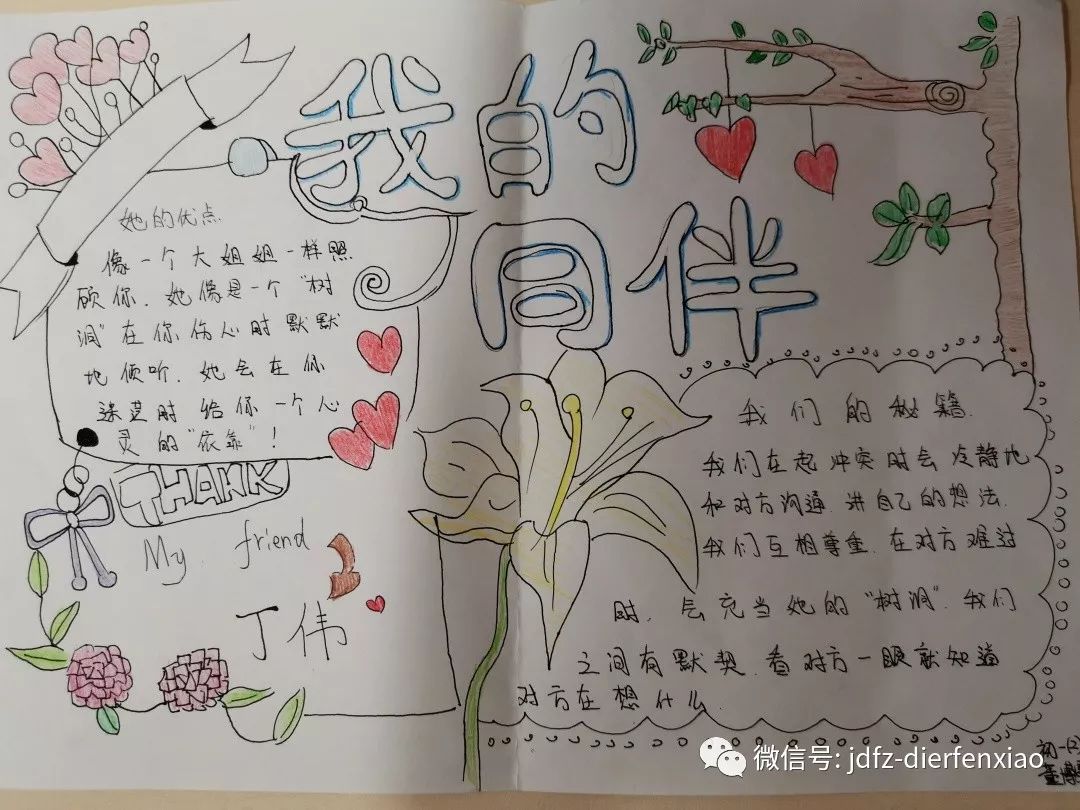 我的
同伴
她的优点
像一个大姐姐一样照
顾你.她像是一个“树
洞”在你伤心时默默
地倾听.她会在你
迷茫时给你一个心
灵的“依靠”!
THANK
My friend
丁伟
我们的秘籍.
我们在起冲突时会冷静地
和对方沟通.讲自己的想法.
我们互相尊重.在对方难过
时.会充当她的“树洞”.我们
之间有默契.看对方一眼就知道
对方在想什么.
初一(2)
董博
微信号: jdfz-dierfenxiao